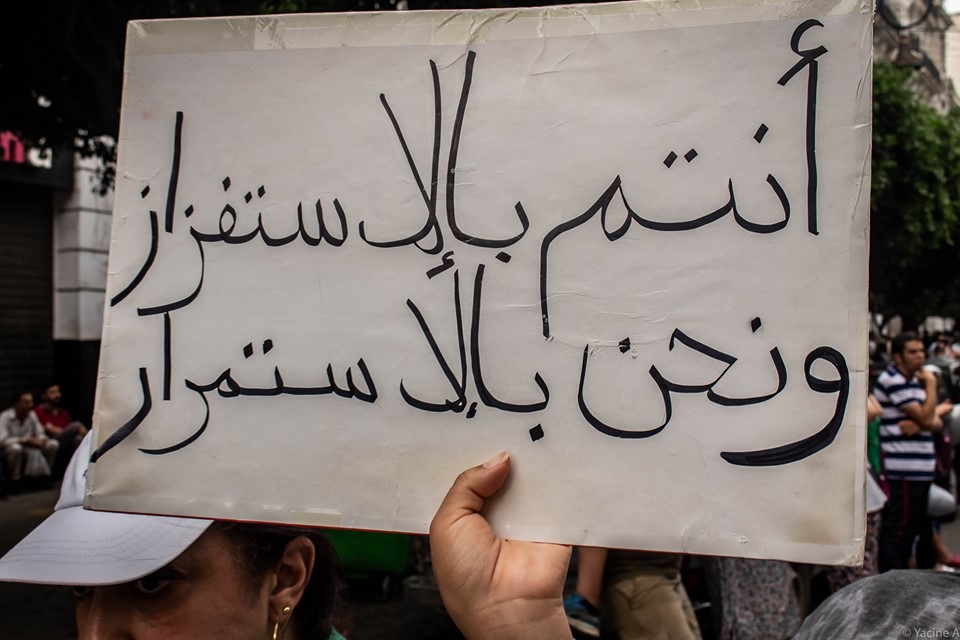 أنتم بالإستفزاز
ونحن بالإستمرار
© Yacine A